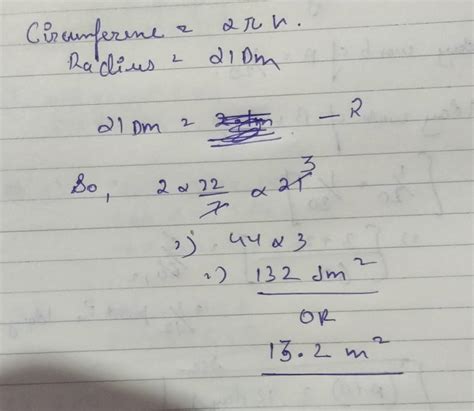 Circumference = 2πr.
Radius = 21 Dm
21 Dm = — R
So, 2 × 22/7 × 21 3
=) 44 × 3
=) 132 dm²
OR
13.2 m²